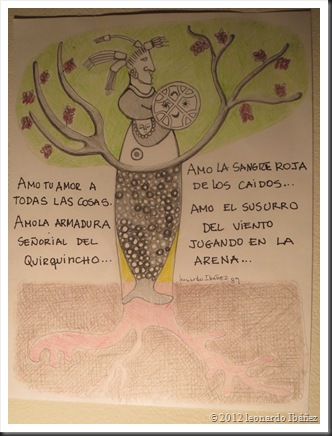 AMO TU AMOR A
TODAS LAS COSAS.
AMO LA ARMADURA
SEÑORIAL DEL
QUIRQUINCHO...
AMO LA SANGRE ROJA
DE LOS CAIDOS...
AMO EL SUSURRO
DEL VIENTO
JUGANDO EN LA
ARENA...
Leonardo Ibáñez 89
© 2012 leonardo Ibáñez